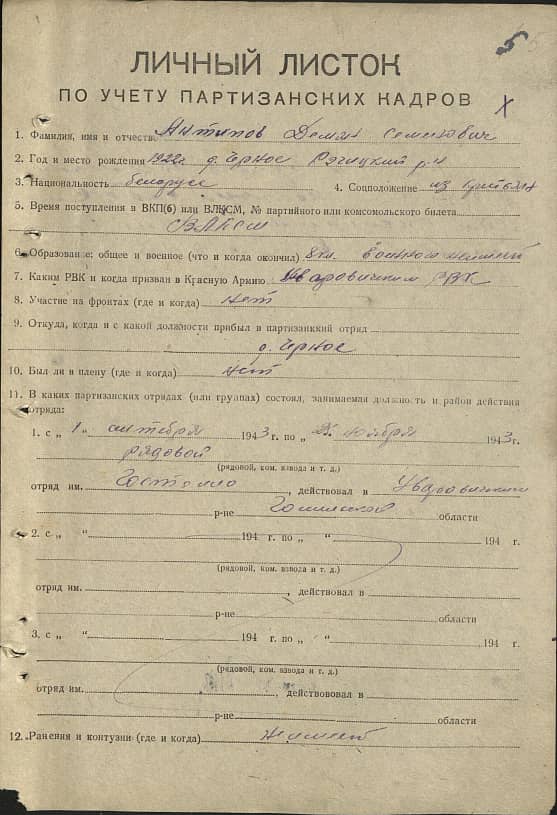 5
ЛИЧНЫЙ ЛИСТОК
ПО УЧЕТУ ПАРТИЗАНСКИХ КАДРОВ
1. Фамилия, имя и отчеств. Антипов Демян Семенович
2. Год и место рождения 1922г д. Чернос Речицкий р-н
3. Национальность белорусс 4. Соцположение из крестьян
5. Время поступления в ВКП(б) или ВЛКСМ, № партийного или комсомольского билета
ВЛКСМ
6. Образование: общее и военное (что и когда окончил) 8 кл. военного неимеет
7. Каким РВК и когда призван в Красную Армию Уваровичским РВК
8. Участие на фронтах (где и когда) нет
9. Откуда, когда и с какой должности прибыл в партизанккий отряд
д. Чернос
10. Был ли в плену (где и когда) нет
11. В каких партизанских отрядах (или группах) состоял, занимаемая должность и район действия
отряда:
1. с „ 1 " октября 1943 г. по „ " ноября 1943 г.
рядовой
(рядовой, ком. взвода и т. д.)
отряд им. Гостелло, действовал в Уваровичском
р-не Гомельской области
2. с „ " 194 г. по „ " 194 г.
(рядовой, ком. взвода и т. д.)
отряд им. , действовал в
р-не области
3. с „ " 194 г. по „ " 194 г.
(рядовой, ком. взвода и т. д.)
отряд им. , действововал в
р-не области
12. Ранения и контузии (где и когда) неимеет